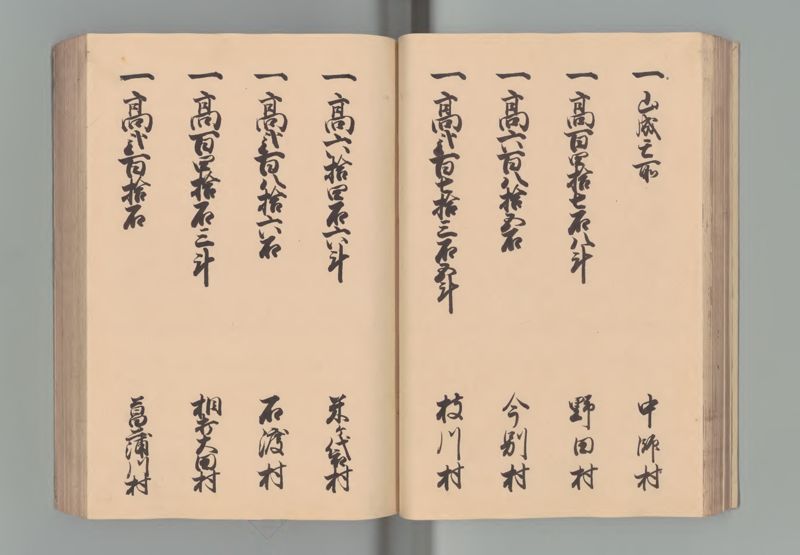 一 山成 所 中師村
一 高百四拾七石八斗 野田村
一 高六百八拾五石 今別村
一 高弐百七拾三石五斗 枝川村
一 高六拾四石六斗 村
一 高弐百八拾六石 石渡村
一 高百四拾石三斗 相 大田村
一 高弐百拾石 菖蒲川村